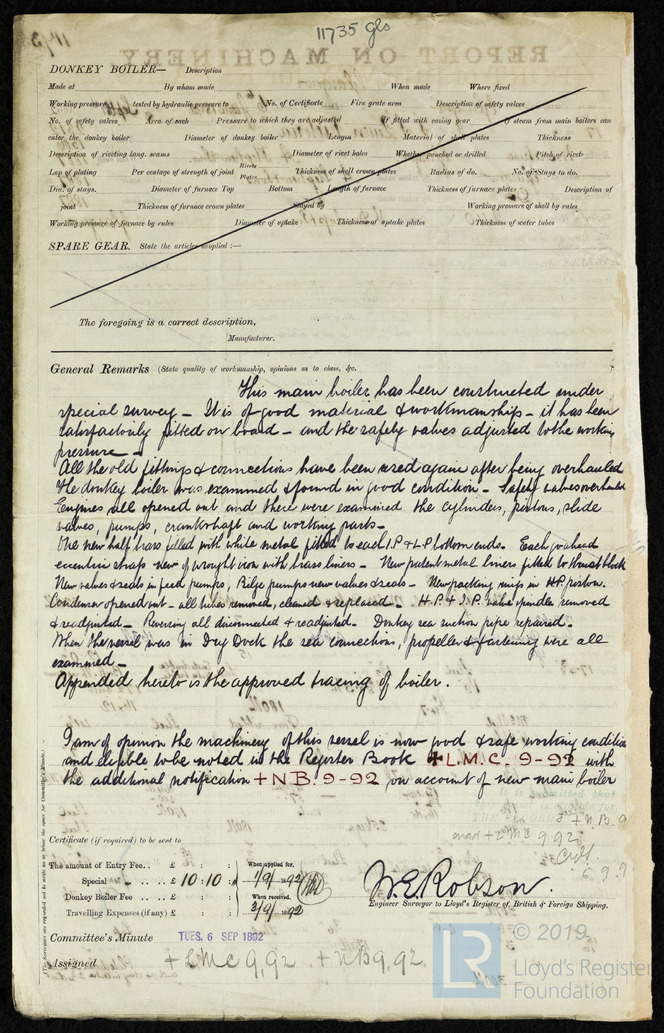 11735 gls
DONKEY BOILER— Description
Made at By whom made When made Where fixed
Working pressure tested by hydraulic pressure to No. of Certificate Fire grate area Description of safety valves
No. of safety valves Area of each Pressure to which they are adjusted If fitted with easing gear If steam from main boilers can
enter the donkey boiler Diameter of donkey boiler Length Material of shell plates Thickness
Description of riveting long. seams Diameter of rivet holes Whether punched or drilled Pitch of rivets
Lap of plating Per centage of strength of joint Rivets Plates Thickness of shell crown plates Radius of do. No. of Stays to do.
Dia. of stays. Diameter of furnace Top Bottom Length of furnace Thickness of furnace plates Description of
joint Thickness of furnace crown plates Stayed by Working pressure of shell by rules
Working pressure of furnace by rules Diameter of uptake Thickness of uptake plates Thickness of water tubes
SPARE GEAR. State the articles supplied :—
The foregoing is a correct description,
Manufacturer.
General Remarks (State quality of workmanship, opinions as to class, &c.
This main boiler has been constructed under
special survey – It is of good material & workmanship – it has been
satisfactorily fitted on board – and the safety valves adjusted to the working
pressure –
All the old fittings & connections have been used again after being overhauled
The donkey boiler was examined & found in good condition – Safety valves overhauled
Engines all opened out and there were examined the cylinders, pistons, slide
valves, pumps, crankshaft and working parts –
One new half brass filled with white metal fitted to each I.P & L.P bottom ends. Each go ahead
eccentric strap new of wrought iron with brass liners – New patent metal liners fitted to thrust block
New valves & seats in feed pumps, Bilge pumps new valves & seats – New packing rings in H.P. piston.
Condenser opened out – all tubes removed, cleaned & replaced – H.P. & I.P. valve spindles removed
& readjusted – Reversing all disconnected & readjusted – Donkey sea suction pipe repaired –
When the vessel was in Dry Dock the sea connections, propeller & fastening were all
examined –
Appended hereto is the approved tracing of boiler.
I am of opinion the machinery of this vessel is now good & safe working condition
and eligible to be noted in the Register Book +L.M.C. 9-92 with
the additional notification +N B. 9-92 on account of new main boiler
Certificate (if required) to be sent to
The amount of Entry Fee .. £ : : When applied for,
Special .. £ 10 : 10 : 1/9/ 1892
Donkey Boiler Fee £ : : When received.
Travelling Expenses (if any) £ : : 3/9/ 1892
W.E. Robson.
Engineer Surveyor to Lloyd's Register of British & Foreign Shipping.
Committee's Minute TUES. 6 SEP 1892
Assigned + LMC 9,92 + NB 9,92
LR © 2019
Lloyd's Register
Foundation